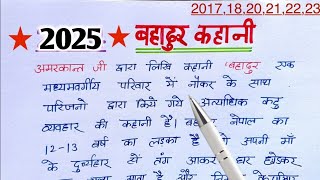 2017,18,20,21,22,23
★ 2025 ★ बहादुर कहानी
अमरकान्त जी द्वारा लिखि कहानी 'बहादुर' एक
मध्यमवर्गीय परिवार में नौकर के साथ
परिजनो द्वारा किये गये अत्यधिक कटु
व्यवहार की कहानी है। नेपाल का
12-13 बर्ष का लड़का है अपनी माँ
के दुर्व्यहार से तंग आकर घर छोड़कर
जाता है और